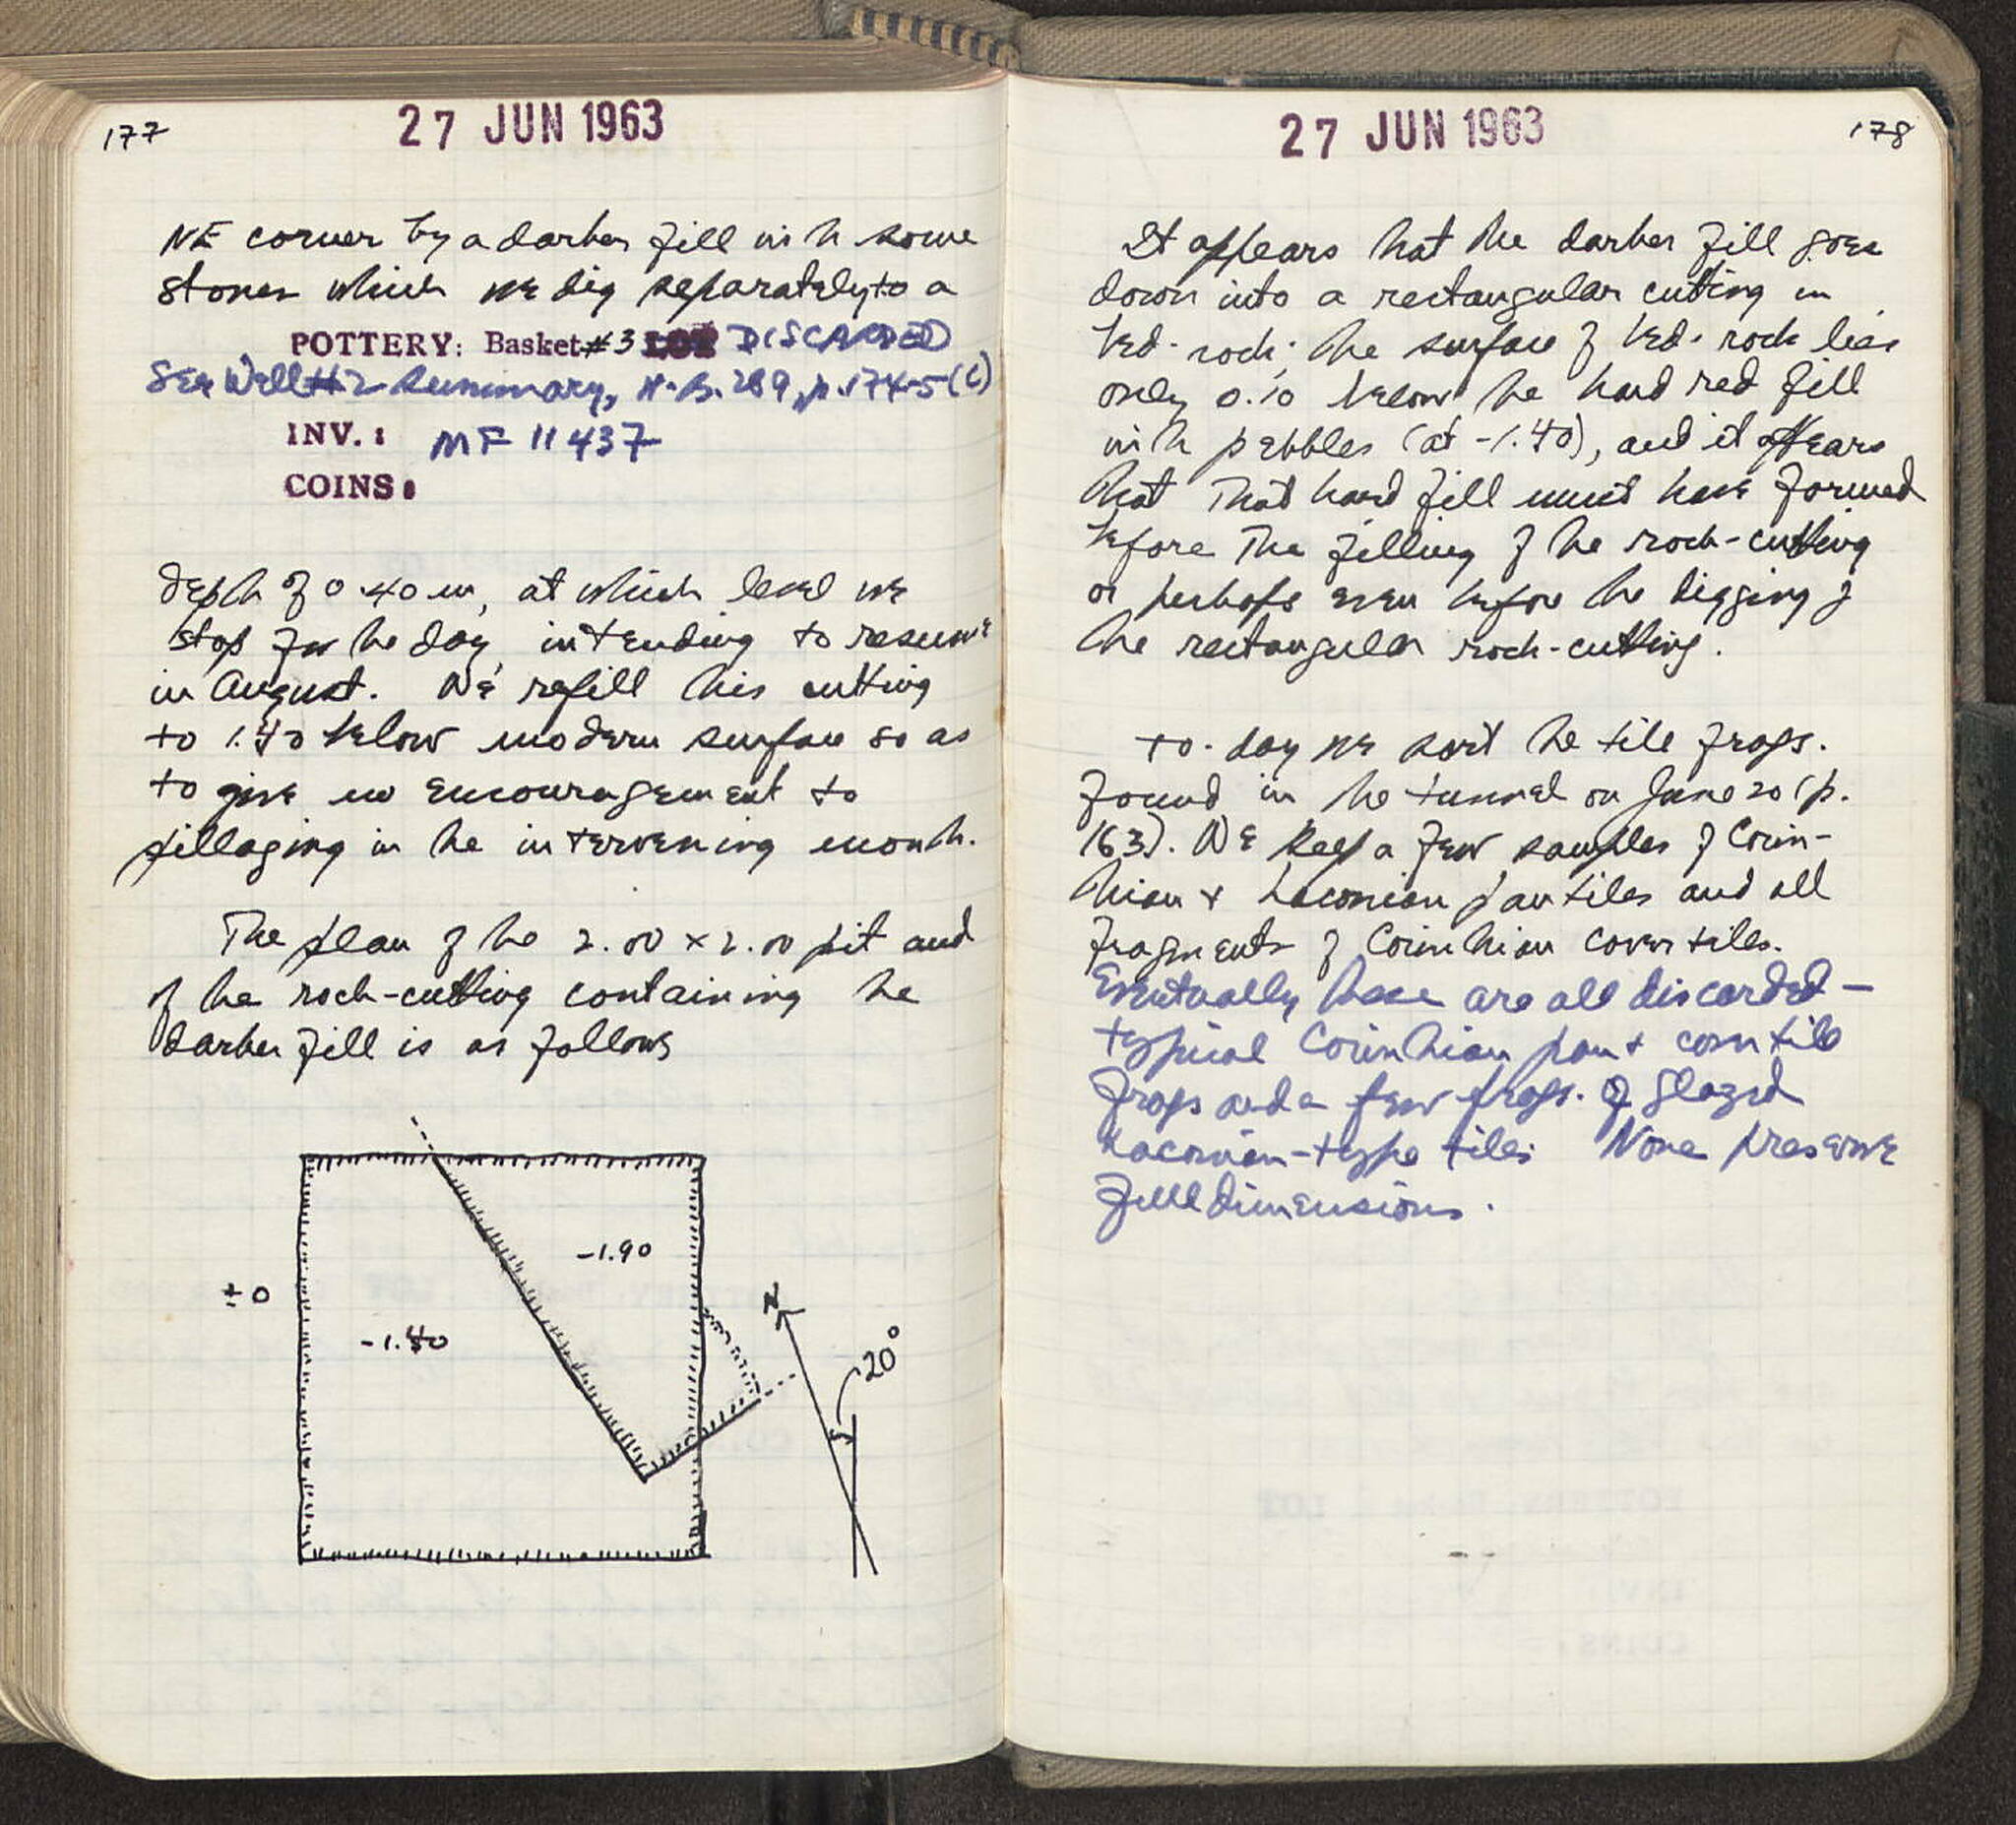 177
27 JUN 1963
NE corner by a darker fill with some
stones which we dig separately to a
POTTERY: Basket #3 LOT DISCARDED
See Well #2 Summary, N.B. 289, p. 174-5 (c)
INV.: MF 11437
COINS:
depth of 0.40 m, at which level we
stop for the day, intending to resume
in August. We refill this cutting
to 1.40 below modern surface so as
to give no encouragement to
pillaging in the intervening month.
The plan of the 2.00 x 2.00 pit and
of the rock-cutting containing the
darker fill is as follows
-1.90
± 0
-1.40
N
20°
178
27 JUN 1963
It appears that the darker fill goes
down into a rectangular cutting in
bed-rock; the surface of bed-rock lies
only 0.10 below the hard red fill
with pebbles (at -1.40), and it appears
that that hard fill must have formed
before the filling of the rock-cutting
or perhaps even before the digging of
the rectangular rock-cutting.
To-day we sort the tile frags.
found in the tunnel on June 20 (p.
163). We keep a few samples of Corin-
thian + Laconian pan tiles and all
fragments of Corinthian cover tiles.
Eventually these are all discarded –
typical Corinthian pan + cover tile
frags and a few frags. of glazed
Laconian-type tiles None preserve
full dimensions.